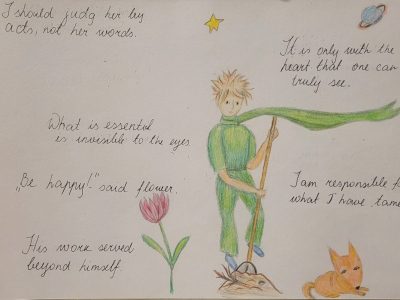 I should judg her by
acts, not her words.
It is only with the
heart that one can
truly see.
What is essential
is invisible to the eyes.
"Be happy!" said flower.
I am responsible f
what I have tame
His work served
beyond himself.